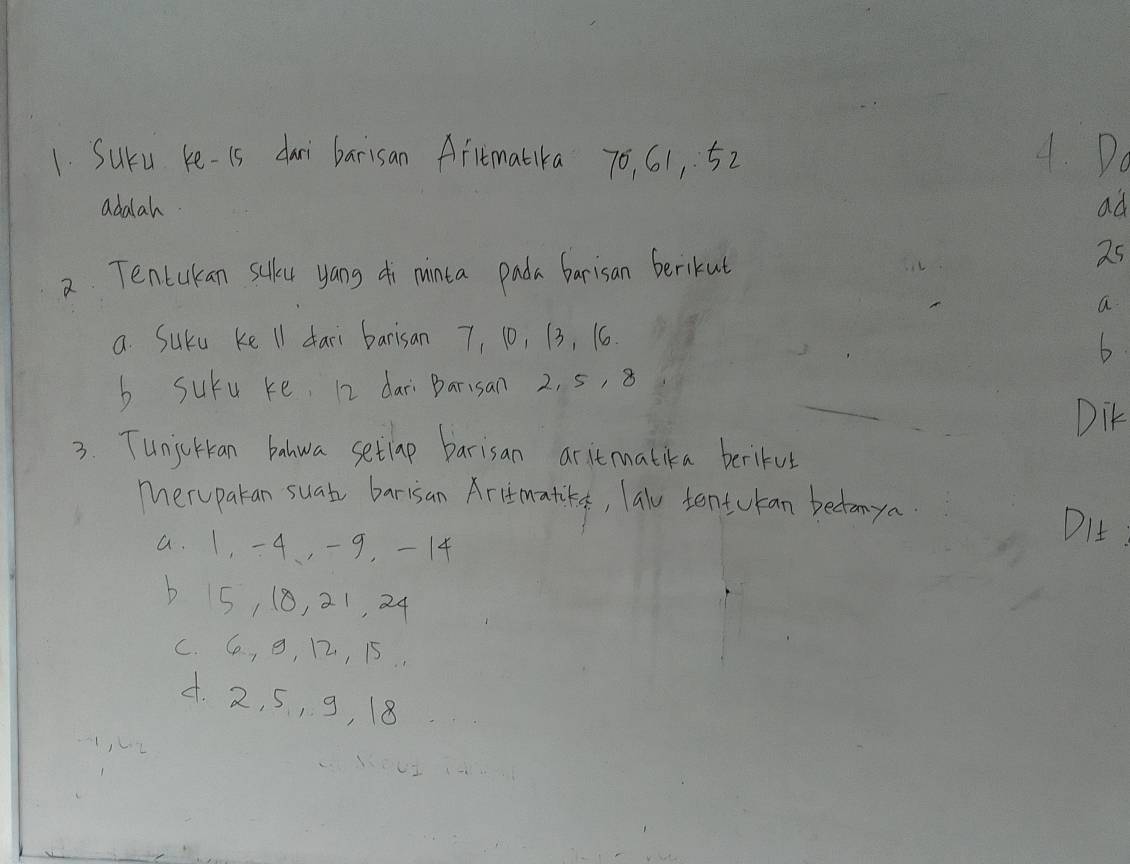 1. Suku ke-15 dari barisan Aritmatika 70, 61, 52
adalah.
2. Tentukan suku yang di minta pada barisan berikut
a. Suku ke 11 dari barisan 7, 10, 13, 16.
b suku ke. 12 dari Barisan 2, 5, 8.
3. Tunjukkan bahwa setiap barisan aritmatika berikut
Merupakan suatu barisan Aritmatika, lalu tentukan bedanya.
a. 1, -4, -9, -14
b 15, 18, 21, 24
c. 6, 9, 12, 15..
d. 2, 5, 9, 18 ...
4. Do
ad
25
a
b
Dik
Dit: